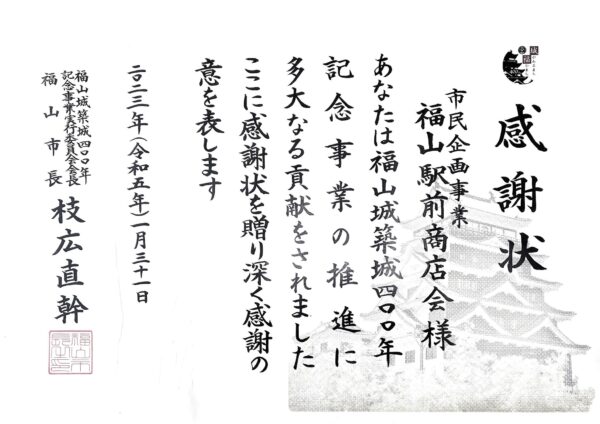 感謝状
市民企画事業
福山駅前商店会 様
あなたは福山城築城四〇〇年
記念事業の推進に
多大なる貢献をされました
ここに感謝状を贈り深く感謝の
意を表します
二〇二三年(令和五年)一月三十一日
福山城築城四〇〇年
記念事業実行委員会会長
福山市長
枝広直幹